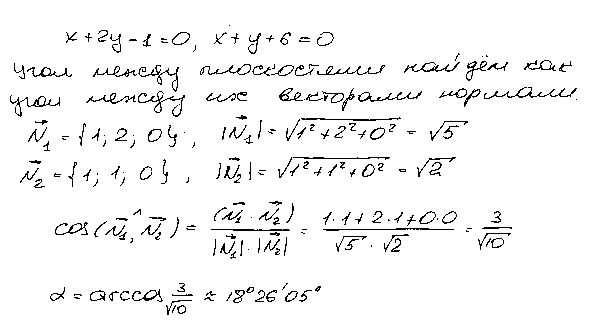 x+2y-1=0, x+y+6=0
Угол между плоскостями найдём как
угол между их векторами нормали.
N⃗₁ = {1; 2; 0}, |N⃗₁| = √(1²+2²+0²) = √5
N⃗₂ = {1; 1; 0}, |N⃗₂| = √(1²+1²+0²) = √2
cos(N⃗₁,^N⃗₂) = (N⃗₁·N⃗₂)/(|N⃗₁|·|N⃗₂|) = (1·1+2·1+0·0)/(√5·√2) = 3/√10
α = arccos 3/√10 ≈ 18°26′05″